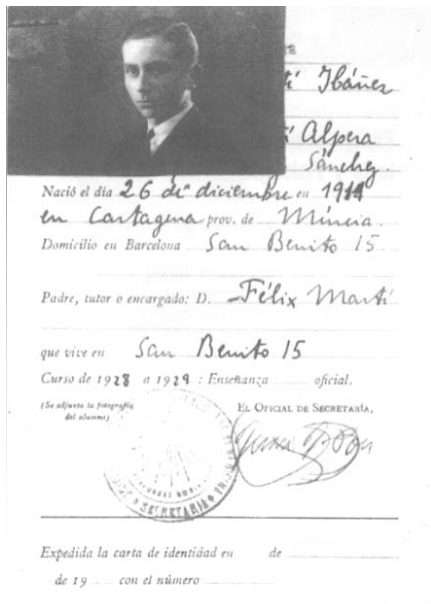 í Ibáñez
í Alpera
Sánchez.
Nació el día 26 de diciembre en 1911
en Cartagena prov. de Múrcia.
Domicilio en Barcelona San Benito 15
Padre, tutor o encargado: D. Félix Martí
que vive en San Benito 15
Curso de 1928 a 1929 : Enseñanza oficial.
(Se adjunta la fotografía
del alumno)
EL OFICIAL DE SECRETARÍA,
SECRETARIA
Expedida la carta de identidad en de
de 19 con el número